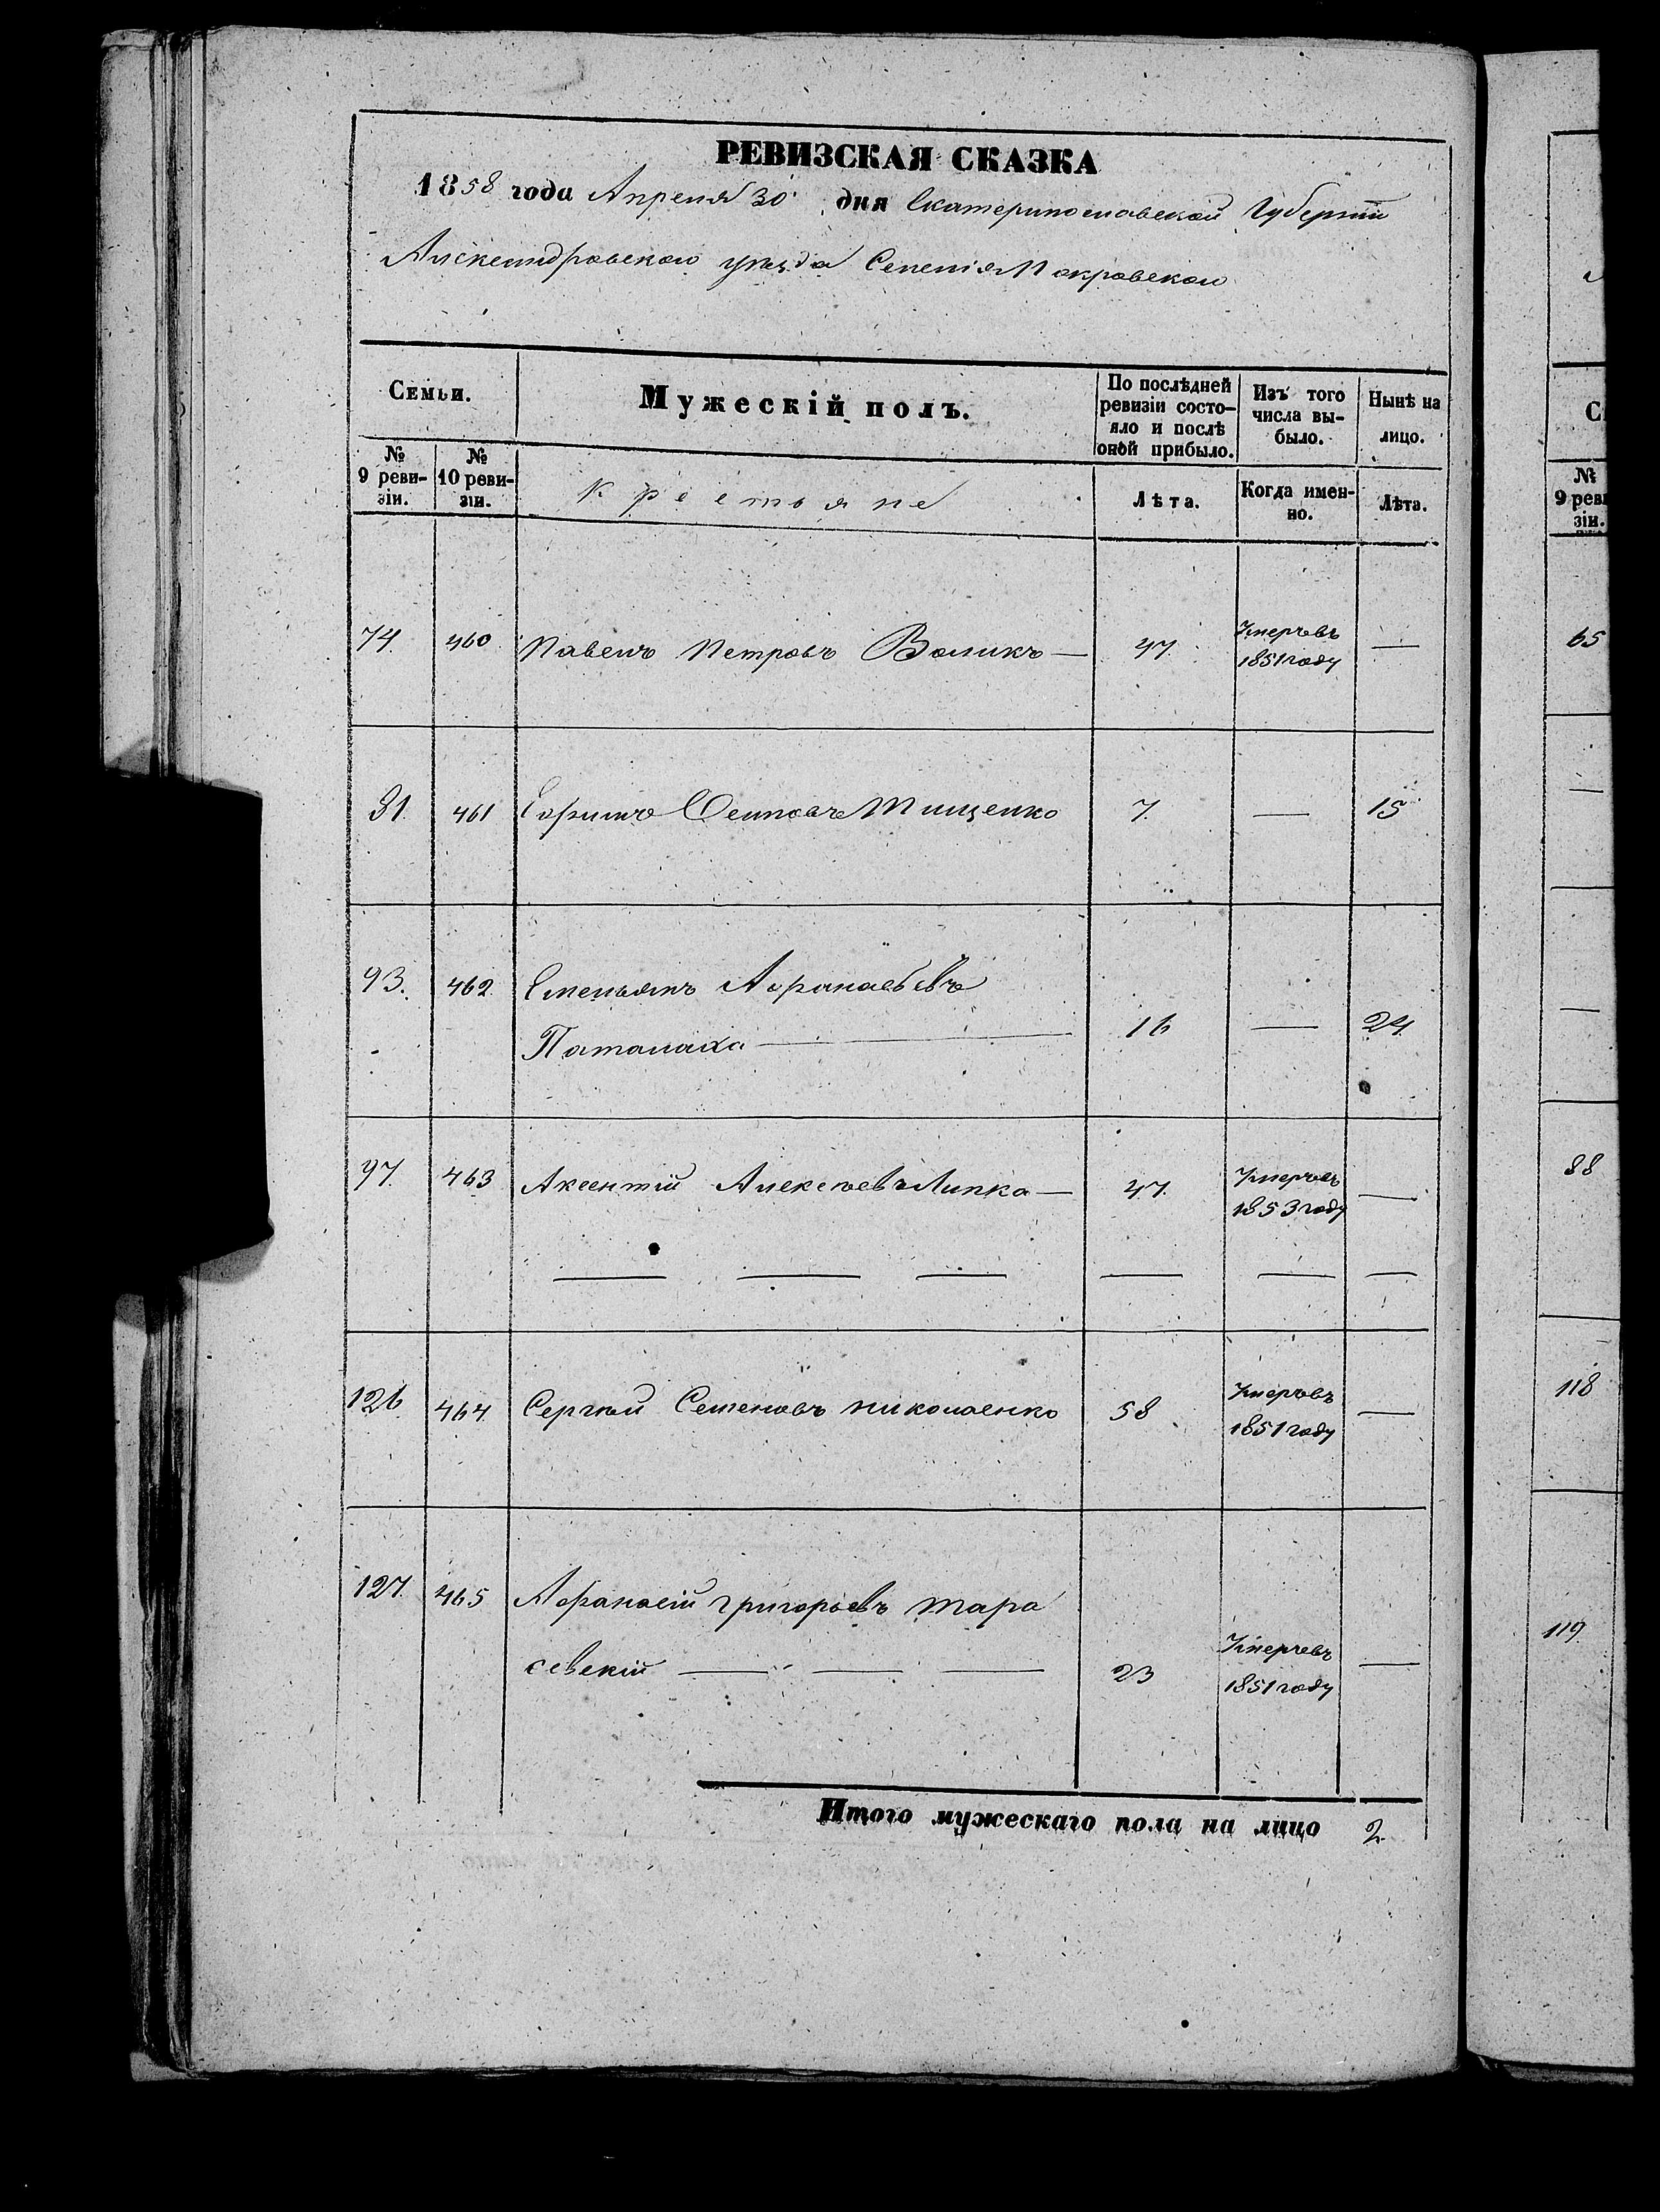 РЕВИЗСКАЯ СКАЗКА
1858 года Апреля 30 дня Екатеринославской Губернiи
Александровского уезда Селенiя Покровского
Семьи.
Мужескiй полъ.
По послѣдней ревизiи состо-
яло и послѣ
оной прибыло.
Изъ того
числа вы-
было.
Нынѣ на
лицо.
№
9 реви-
зiи.
№
10 реви-
зiи.
Крестьяне
Лѣта.
Когда имен-
но.
Лѣта.
74. 460 Павелъ Петровъ Воликъ — 47 Умеръ въ
1851 году —
81. 461 Ефимъ Осиповъ Тищенко 7. — 15
93. 462. Емельянъ Афанасьевъ
Паталаха — 16 — 24
97. 463 Аксентiй Алексѣевъ Липка — 47. Умеръ въ
1853 году —
126. 464 Сергѣй Семеновъ Николаенко 58 Умеръ въ
1851 году —
127. 465 Афанасiй Григорьевъ Тара
севскiй — — — 23 Умеръ въ
1851 году —
Итого мужескаго пола на лицо 2.
№
9 реви
зiи.
65
88
118
119.